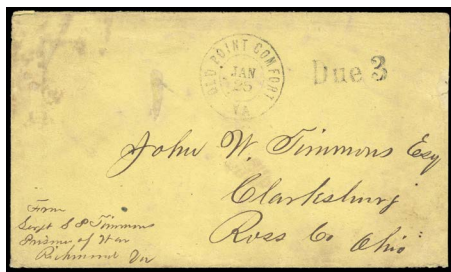 OLD POINT COMFORT
JAN
25
VA
Due 3
John W. Timmons Esq
Clarksburg
Ross Co Ohio
From
Sergt S S Timmons
Prisoner of War
Richmond Va